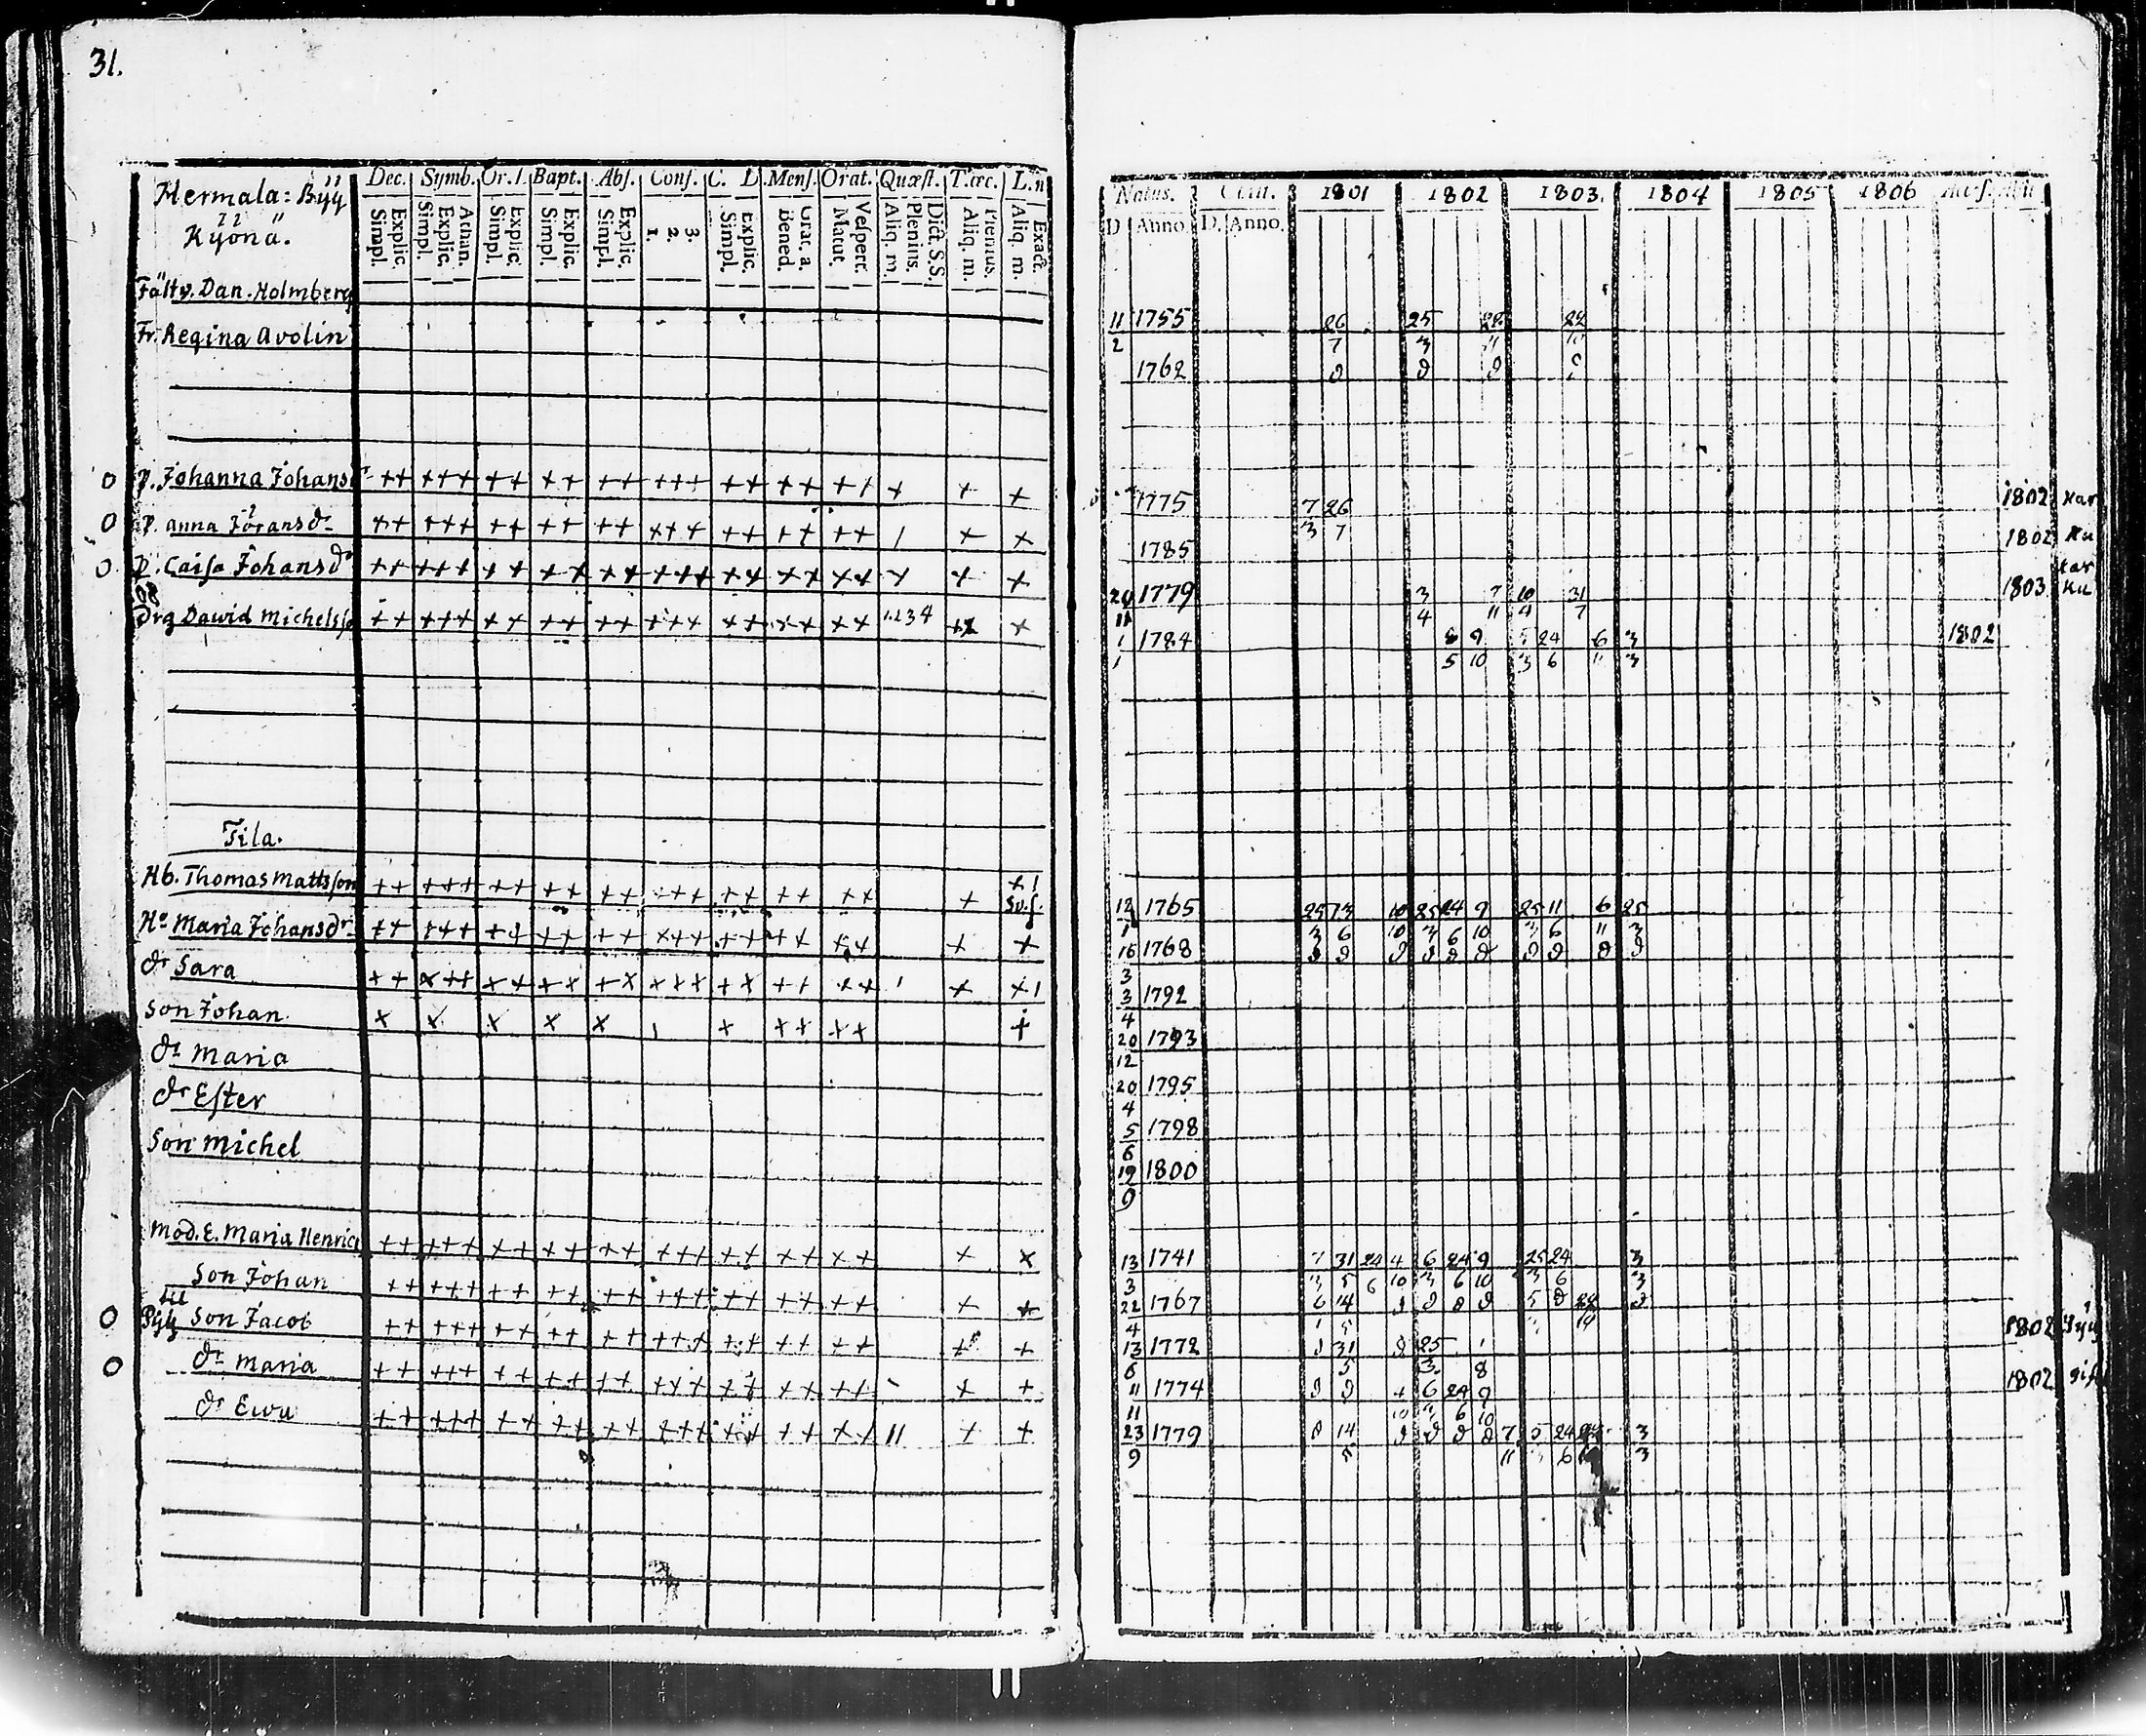 31.
Hermala: Byÿ
Kÿönä.
Dec. Symb. Or. l. Bapt. Abſ. Conf. C. D. Menſ. Orat. Quæſt. T. œc. L. n
Simpl. Explic. Simpl. Explic. Athan. Simpl. Explic. Simpl. Explic. Simpl. Explic. 1. 2. 3. Simpl. Explic. Bened. Grat. a. Matut. Veſpert. Aliq. m. Plenius. Dict. S.S. Aliq. m. Plenius. Aliq. m. Exact.
Natus. 1801 1802 1803. 1804 1805 1806
D Anno D. Anno.
Fältv. Dan. Holmberg 11 1755 26 25 22 22
2 7 3 11 10
Fr. Regina Avolin 1762
O P. Johanna Johans 1775 7 26 1802 Kar
3 7
O P. Anna Jöransdr 1785 1802 Ku
O P. Caiſa Johansdr 1779 3 7 10 31 1803 Ku
4 11 4 7
Drg Dawid Michelsſo 1.2.3 4 1 1784 8 9 5 24 6 3 1802
1 5 10 3 6 11 3
Tila.
Hb. Thomas Mattsſon 12 1765 25 13 10 25 24 9 25 11 6 25
3 6 10 3 6 10 3 6 11 3
Ha Maria Johansdr 16 1768
3
dr Sara 3 1792
4
Son Johan 20 1793
12
dr Maria 20 1795
4
dr Eſter 5 1798
6
Son Michel 19 1800
9
Mod. E. Maria Henrics 13 1741 7 31 24 4 6 24 9 25 24 3
3 3 5 6 10 3 6 10 3 6 3
Son Johan 22 1767 6 14 5 24
4
til
O Son Jacob 13 1772 31 25 1802
6 5 3 8
O dr Maria 11 1774 4 6 24 9 1802 gift
11 10 3 6 10
dr Ewa 23 1779 14 7 5 24 3
9 5 11 6 3